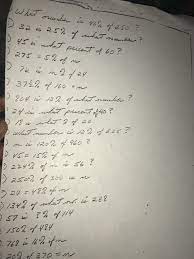 What number is 40% of 250?
32 is 25% of what number?
45 is what percent of 60?
275 = 5% of n
72 is n% of 24
37½% of 160 = n
304 is 12% of what number?
24 is what percent of 40?
13 is what % of 20
What number is 12% of 205?
n is 120% of 960?
45 = 15% of n
224% of n is 56?
250% of 300 is n
24 = 48% of n
134% of what no. is 23?
57 is ?% of 114
150% of 484
768 is 16% of n
20% of 370 = n